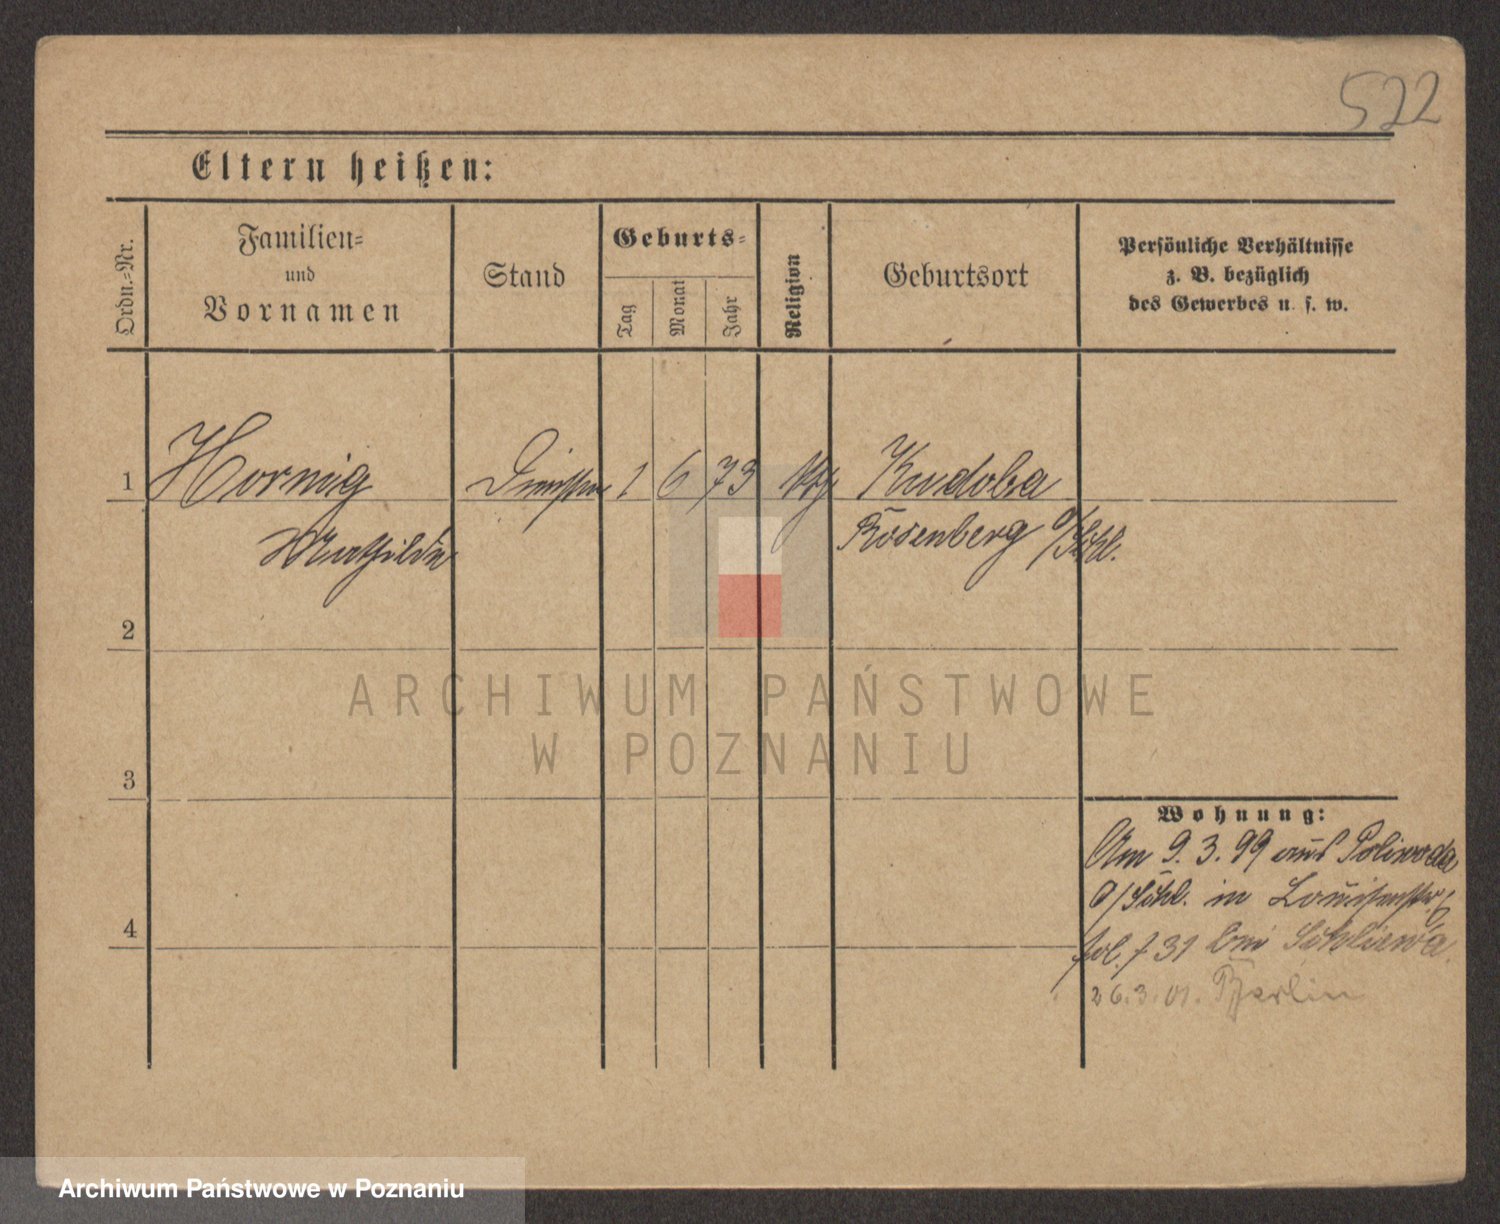 522
Eltern heißen:
Ordn.-Nr.
Familien-
und
Vornamen
Stand
Geburts-
Tag
Monat
Jahr
Religion
Geburtsort
Persönliche Verhältnisse
z. B. bezüglich
des Gewerbes u. s. w.
1
Hornig
1
6
73
Kudoba
Mathilde
Rosenberg O/Schl.
2
ARCHIWUM PAŃSTWOWE
W POZNANIU
3
Wohnung:
Am 9. 3. 99 aus Poliwoda
O/Schl. in Louisenstr.
4
fol. 731 bei
26.3.01. Berlin
Archiwum Państwowe w Poznaniu